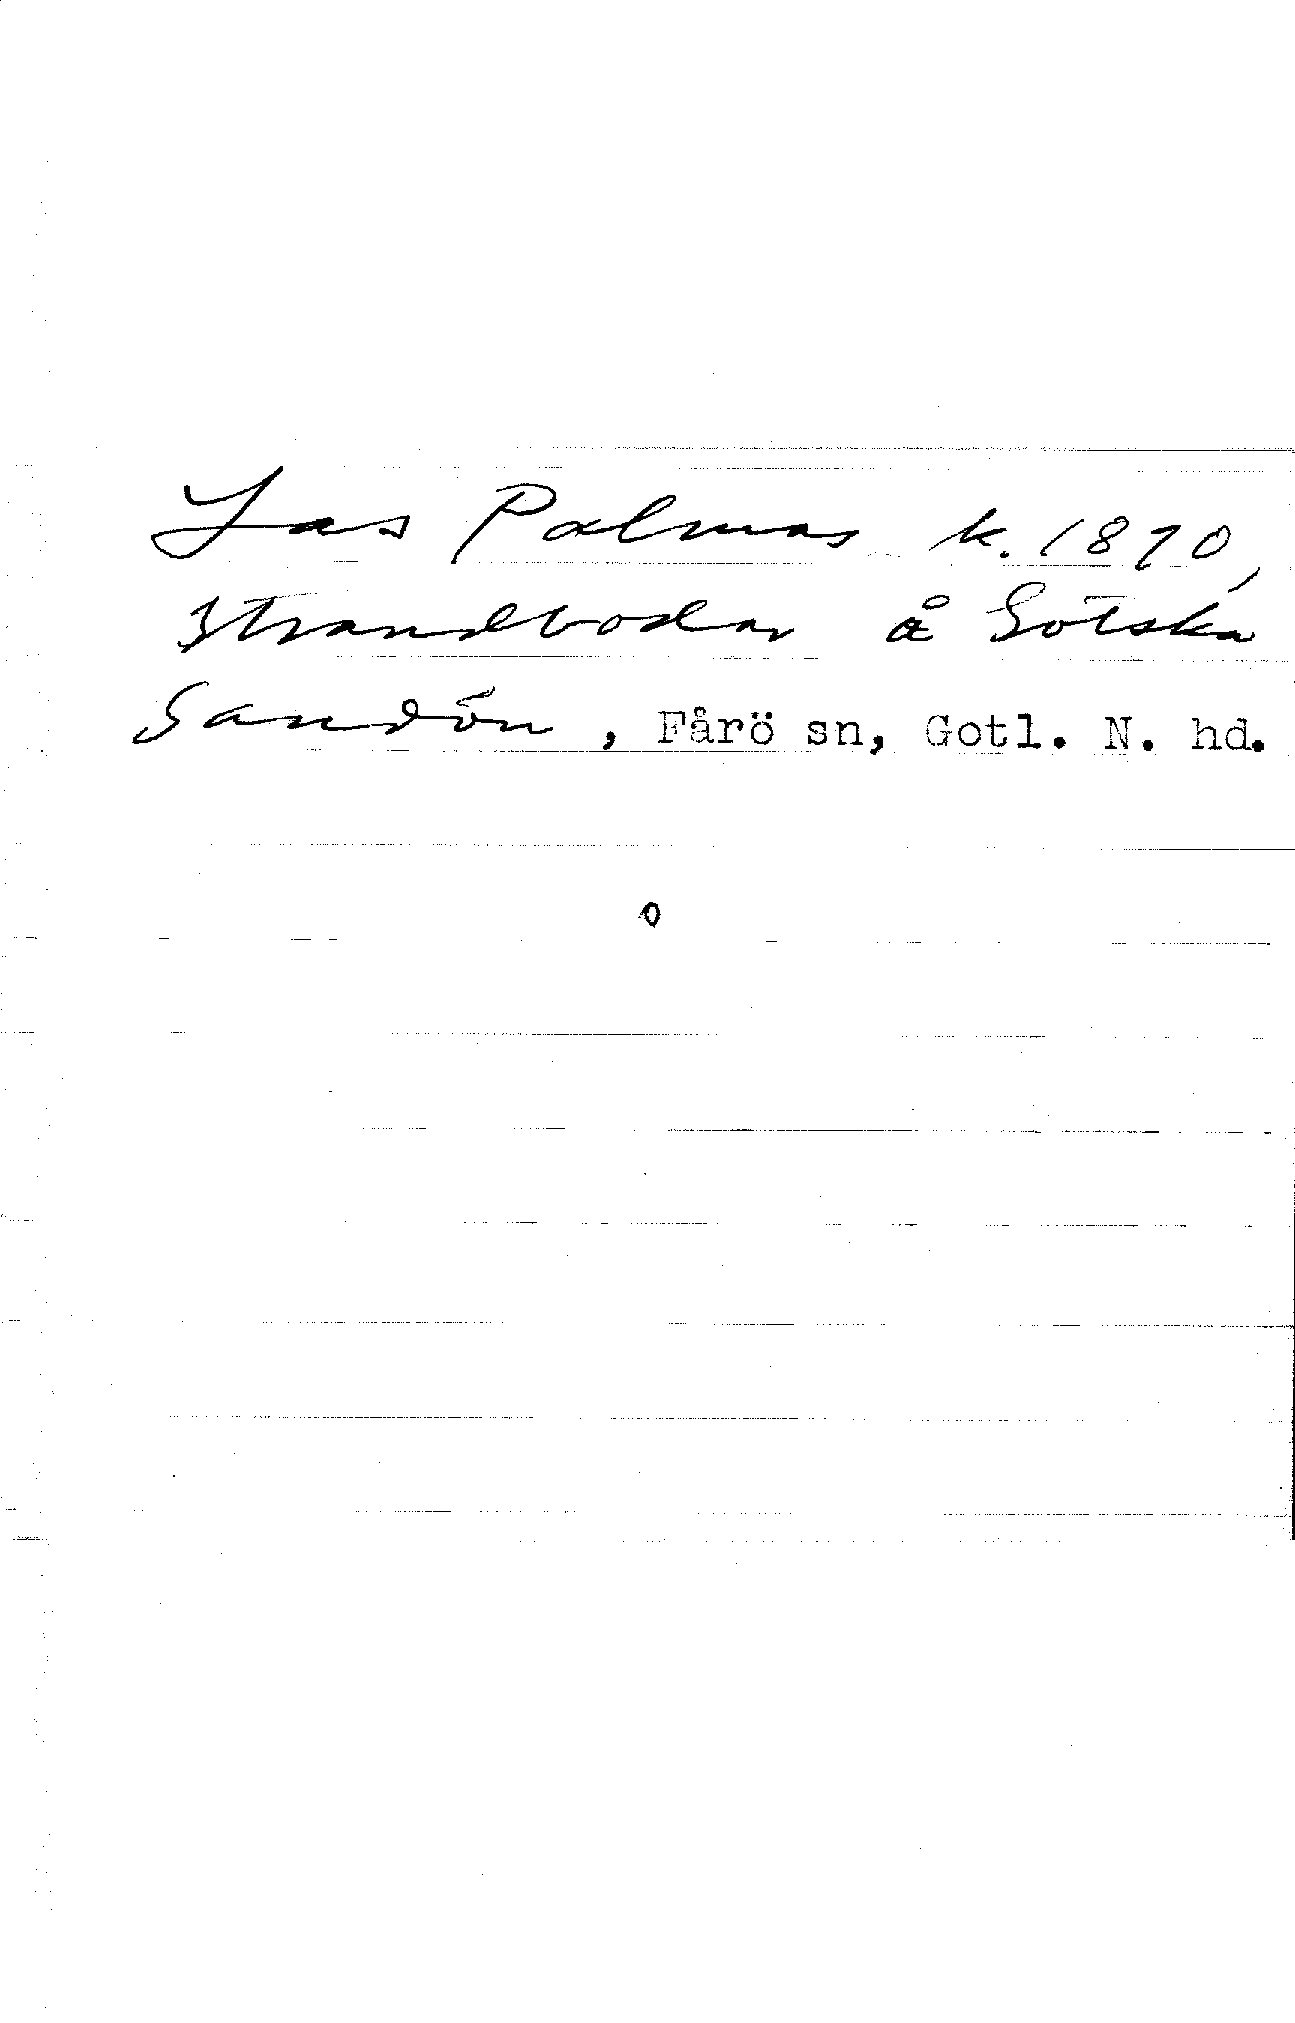 Las Palmas k. 1870,
strandbodar å Gotska
Sandön, Fårö sn, Gotl. N. hd.